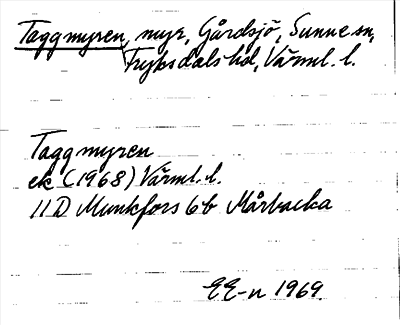 Taggmyren, myr, Gårdsjö, Sunne sn,
Fryksdals hd, Värml. l.
Taggmyren
ek (1968) Värml. l.
11D Munkfors 6b Mårbacka
EE-n 1969.